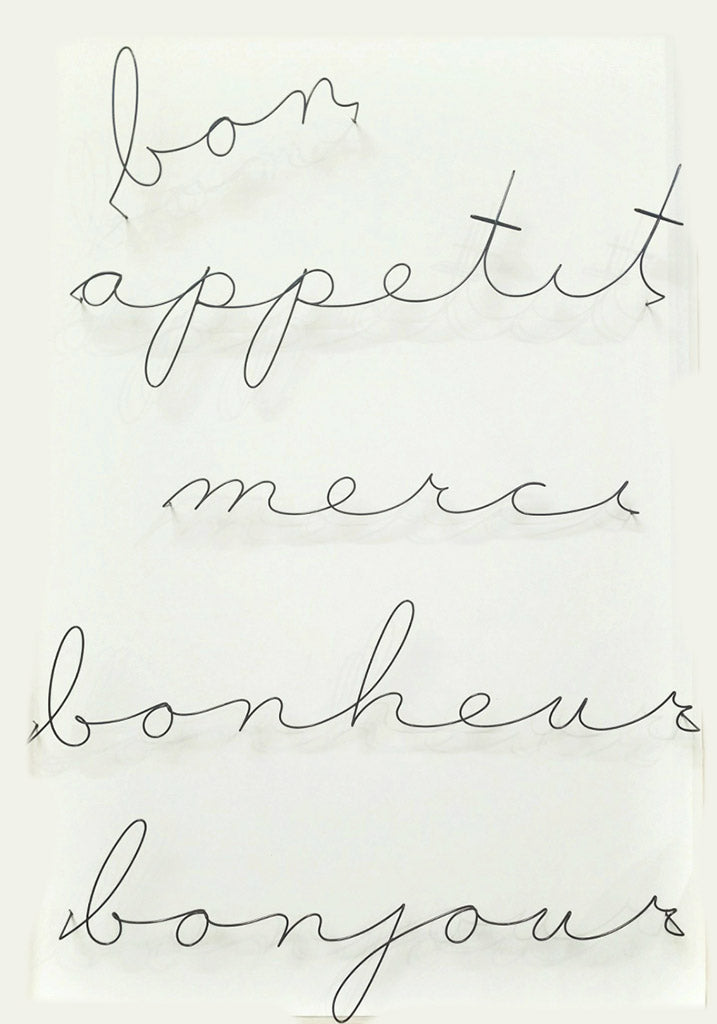 bon
appetit
merci
bonheur
bonjour